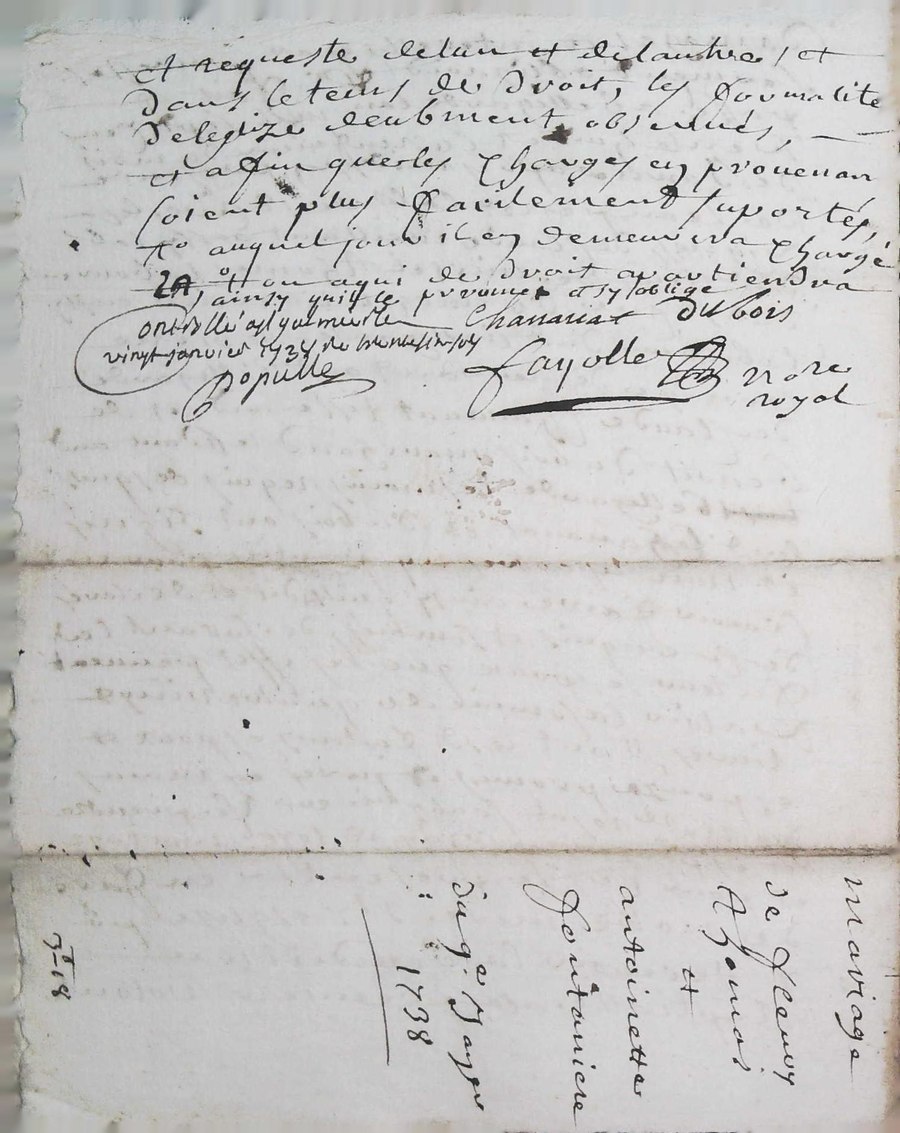 et requeste delun et delautre, et
dans le tems de droit, les formalite
delegize deubment observués,
et affin que les charges en provenan
soient plus facilement suportés,
auquel jour il en demeurera chargé
ou a qui de droit apartiendra
ainsy quil le promet a sy oblige
Chanavat dubois
vingt janvier
populle
fayolle nore
royal
mariage
de fleury
thomas
et
antoinette
fontaniere
du 9e Janver
1738